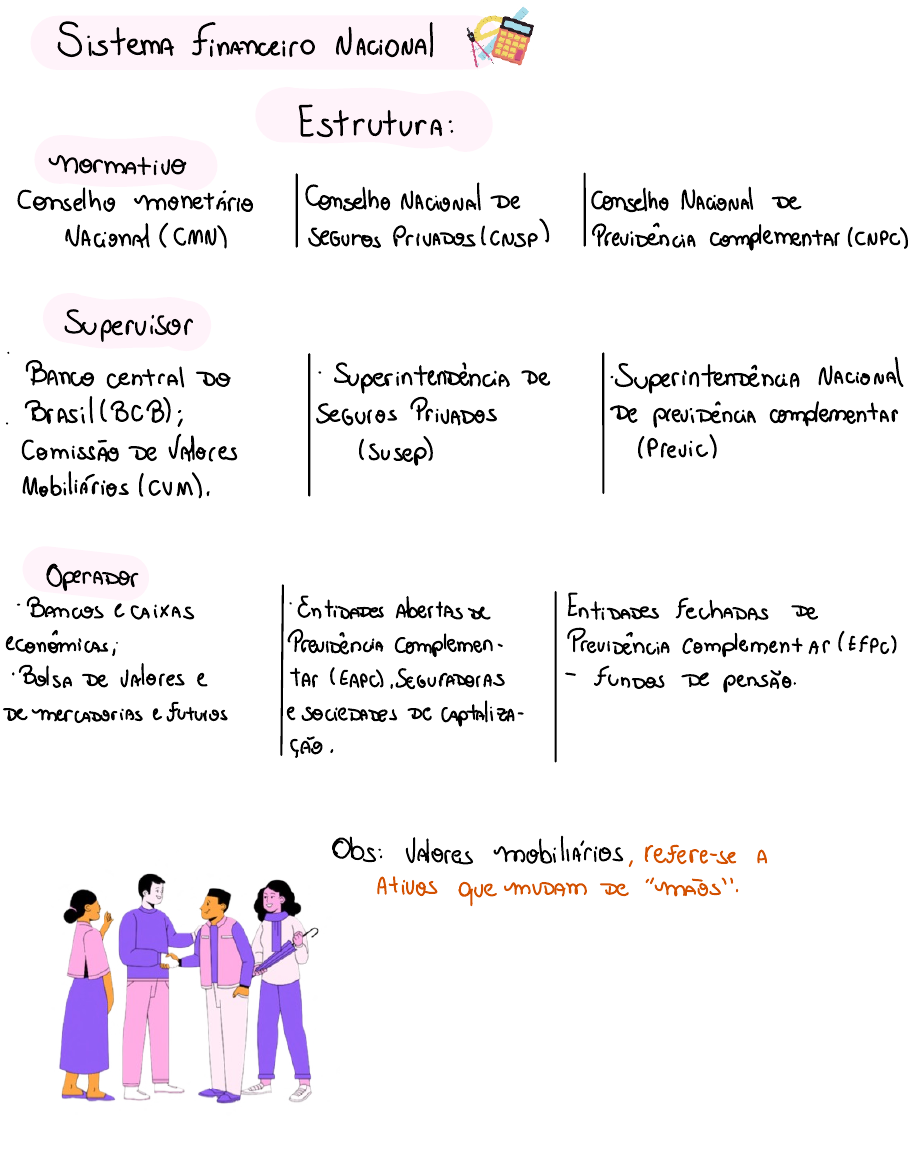 Sistema Financeiro Nacional
Estrutura:
Normativo
Conselho monetário
Nacional (CMN)
Conselho Nacional de
Seguros Privados (CNSP)
Conselho Nacional de
Previdência complementar (CNPC)
Supervisor
Banco central do
Brasil (BCB);
Comissão de Valores
Mobiliários (CVM).
· Superintendência de
Seguros Privados
(Susep)
· Superintendência Nacional
de previdência complementar
(Previc)
Operador
· Bancos e caixas
econômicas;
· Bolsa de valores e
de mercadorias e futuros
· Entidades Abertas de
Previdência Complemen-
tar (EAPC), Seguradoras
e sociedades de captaliza-
ção.
Entidades fechadas de
Previdência Complementar (EFPC)
- fundos de pensão.
Obs: Valores mobiliários, refere-se a
Ativos que mudam de "mãos".